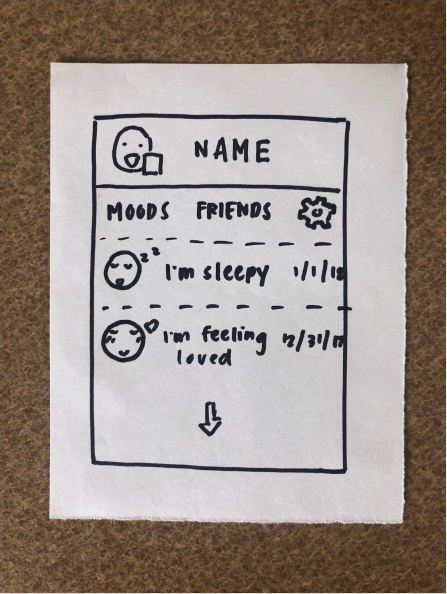 NAME
MOODS FRIENDS
zz
I'm sleepy 1/1/18
I'm feeling 12/31/17
loved